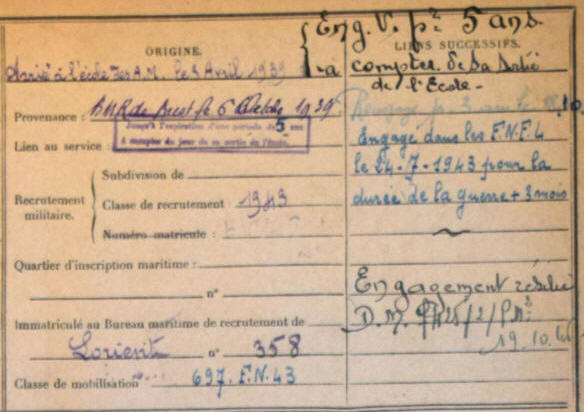 ORIGINE.
Arrivé à l'école des A.M. le 3 Avril 1939
Provenance : B.M.R. de Brest le 6 Octobre 1939
Jusqu'à l'expiration d'une période de 5 ans
à compter du jour de sa sortie de l'école.
Lien au service :
Recrutement militaire.
Subdivision de
Classe de recrutement : 1943
Numéro matricule :
Quartier d'inscription maritime :
n°
Immatriculé au Bureau maritime de recrutement de
Lorient n° 358
Classe de mobilisation 697. F.N. 43
Eng. V. pr 5 ans
LIENS SUCCESSIFS.
à compter de sa sortie
de l'Ecole -
Rengagé pr 3 ans le
Engagé dans les F.N.F.L
le 24-7-1943 pour la
durée de la guerre + 3 mois
Engagement résilié
D.M.
19.10.